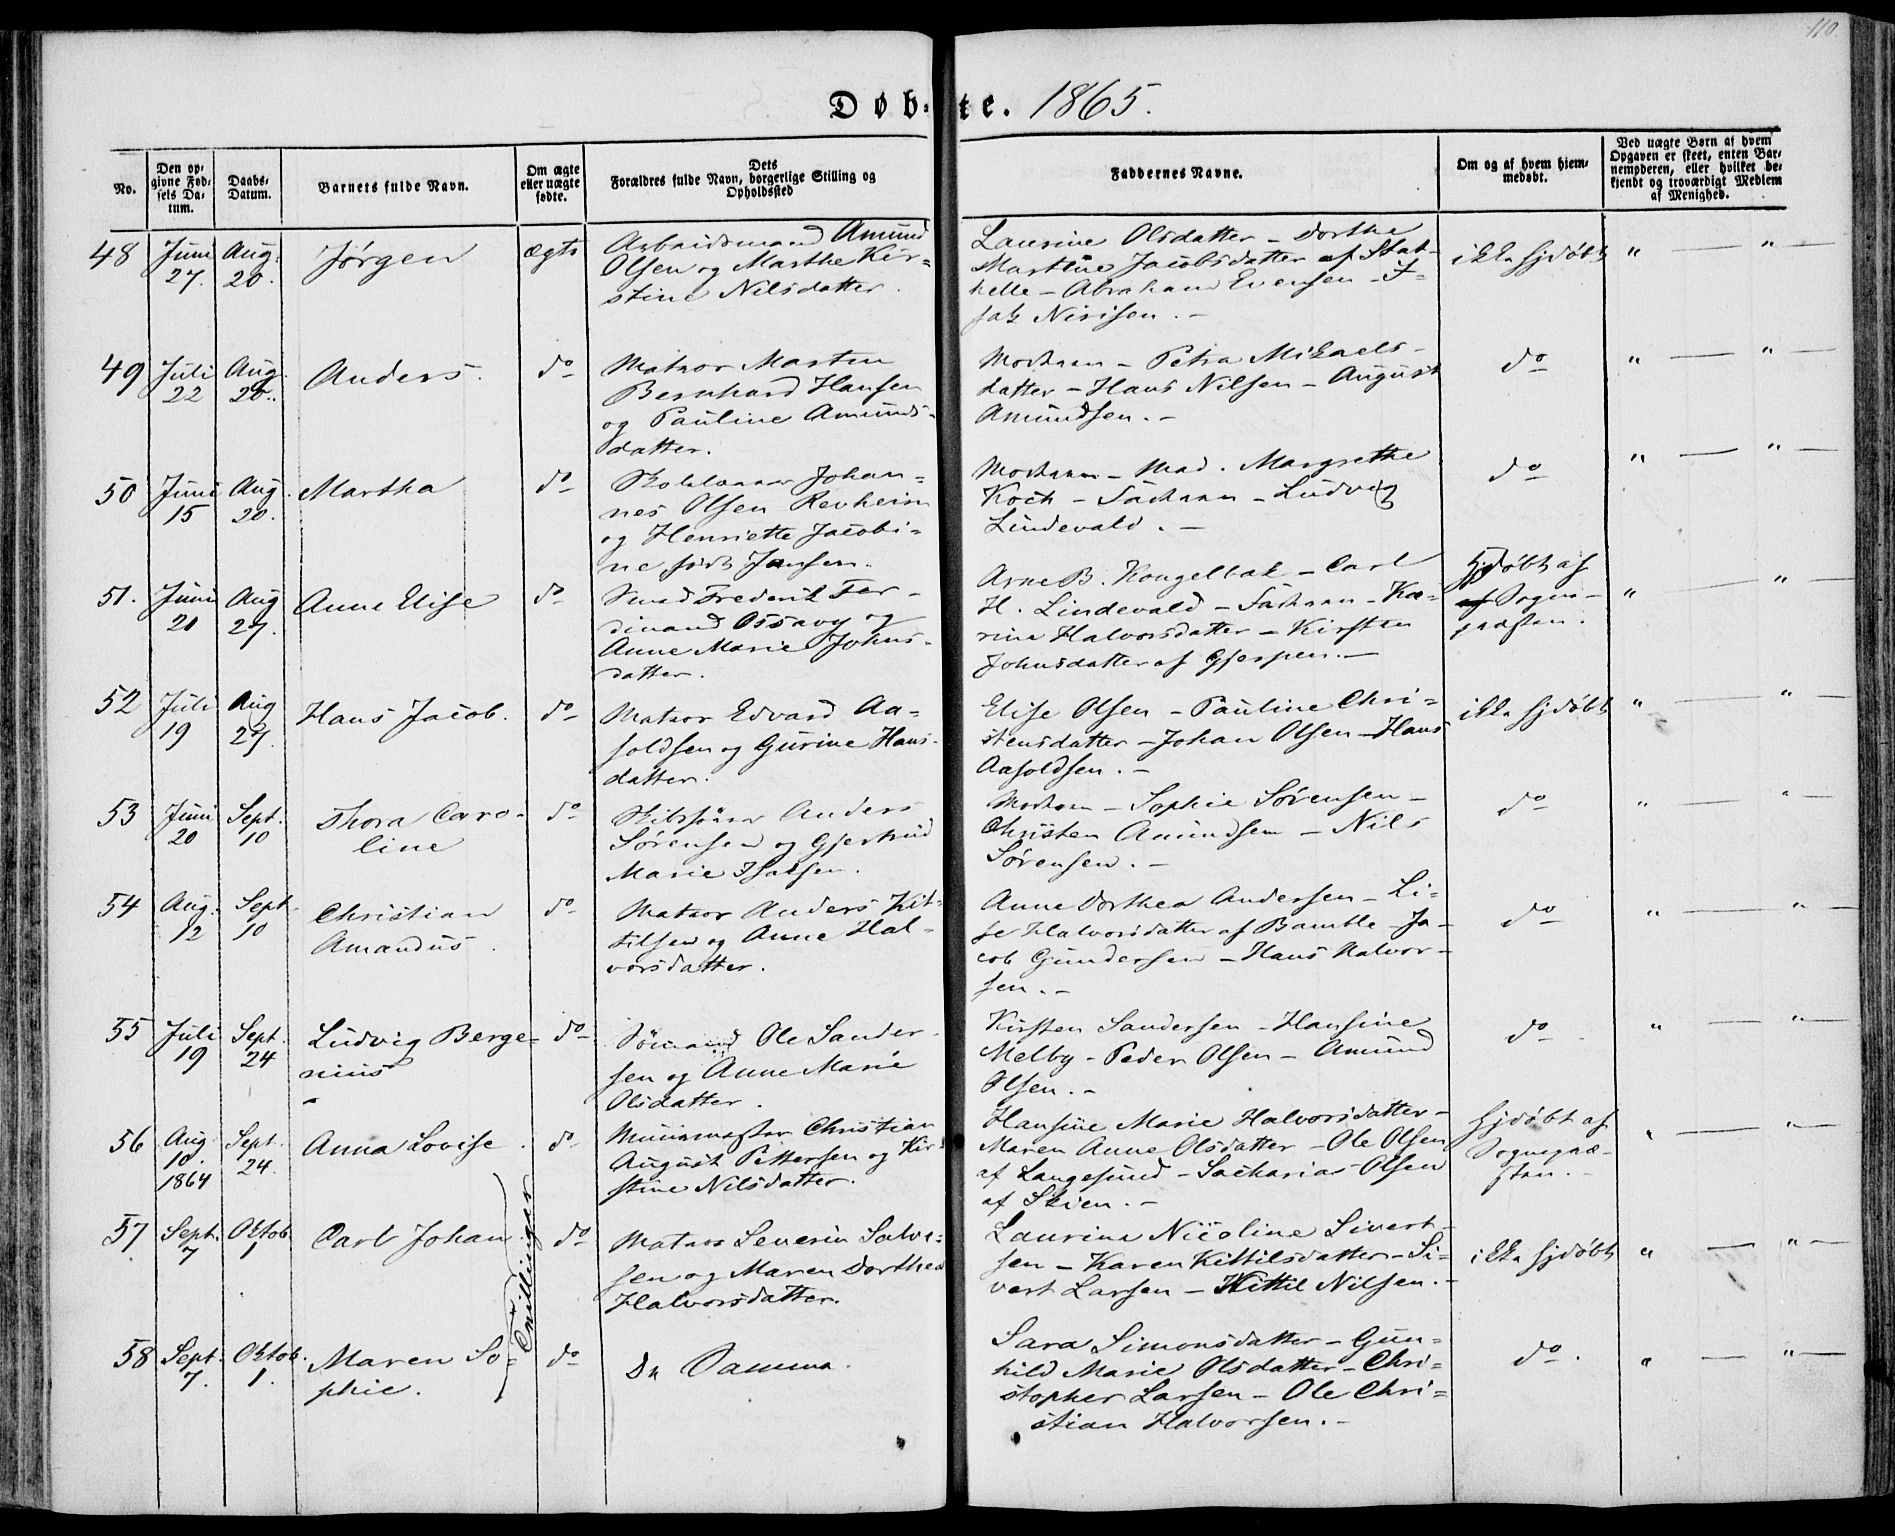 110.
Døbte. 1865.
No.
Den op-
givne Fød-
sels Da-
tum.
Daabs-
Datum.
Barnets fulde Navn.
Om ægte
eller uægte
fødte.
Dets
Forældres fulde Navn, borgerlige Stilling og
Opholdssted
Faddernes Navne.
Om og af hvem hjem-
medøbt.
Ved uægte Børn af hvem
Opgaven er skeet, enten Bar-
nemoderen, eller hvilket be-
kjendt og troværdigt Medlem
af Menighed.
48 Juni 27. Aug. 20. Jørgen ægte
Arbeidsmand Amund
Olsen og Marthe Kir-
stine Nilsdatter.
Laurine Olsdatter - Dorthe
Martine Jacobsdatter af Stat-
helle - Abraham Evensen - I-
sak Nirisen. -
ikke hjdøbt " — " —
49 Juli 22 Aug. 20. Anders. do
Matros Marten
Bernhard Hansen
og Pauline Amunds-
datter.
Moderen - Petra Mikaels-
datter - Hans Nilsen - August
Amundsen. -
do " — " —
50 Juni 15 Aug. 20. Martha do
Skolelærer Johan-
nes Olsen Revheim
og Henriette Jacobi-
ne født Jansen.
Moderen - Mad. Margrethe
Koch - Faderen - Ludvig
Lindevald. -
do " — " —
51. Juni 21 Aug 27. Anne Elise do
Smed Frederik Fer-
dinand Ossavy og
Anne Marie Johns-
datter.
Arne B. Kongelbak - Carl
H. Lindevald - Faderen - Ka-
rine Halvorsdatter - Kirsten
Johnsdatter af Gjerpen. -
Hjdøbt af
af Sogne-
præsten.
" — " —
52 Juli 19 Aug 27. Hans Jacob. do
Matros Edvard Aa-
soldsen og Gurine Hans-
datter.
Elise Olsen - Pauline Chri-
stensdatter - Johan Olsen - Hans
Aasoldsen. -
ikke hjdøbt " — " —
53 Juni 20 Sept. 10 Thora Caro-
line do
Skibsfører Anders
Sørensen og Gjertrud
Marie Isaksen.
Moderen - Sophie Sørensen -
Christen Amundsen - Nils
Sørensen. -
do " — " —
54 Aug. 12 Sept. 10 Christian
Amandus. do
Matros Anders Kit-
tilsen og Anne Hal-
vorsdatter.
Anne Dorthea Andersen - Li-
se Halvorsdatter af Bamble - Ja-
cob Gundersen - Hans Halvor-
sen. -
do " — " —
55 Juli 19 Sept. 24 Ludvig Berge-
nius do
Sømand Ole Sander-
sen og Anne Marie
Olsdatter.
Kirsten Sandersen - Hansine
Melby - Peder Olsen - Amund
Olsen. -
do " — " —
56 Aug. 10. 1864 Sept. 24. Anna Lovise. do
Muurmester Christian
August Pettersen og Kir-
stine Nilsdatter.
Hansine Marie Halvorsdatter -
Maren Anne Olsdatter - Ole Olsen
af Langesund - Sacharias Olsen
af Skien. -
Hjdøbt af
Sognepræ-
sten. -
" — " —
57 Sept. 7 Oktob. 1 Carl Johan do
Matros Severin Salve-
sen og Maren Dorthea
Halvorsdatter.
Laurine Nicoline Sivert-
sen - Karen Kittilsdatter - Si-
vert Larsen - Kittil Nilsen. -
ikke hjdøbt " — " —
Tvillinger
58 Sept. 7. Oktob. 1. Maren So-
phie. do
De Samme.
Sara Simonsdatter - Gun-
hild Marie Olsdatter - Chri-
stopher Larsen - Ole Chri-
stian Halvorsen. -
do. " — " —